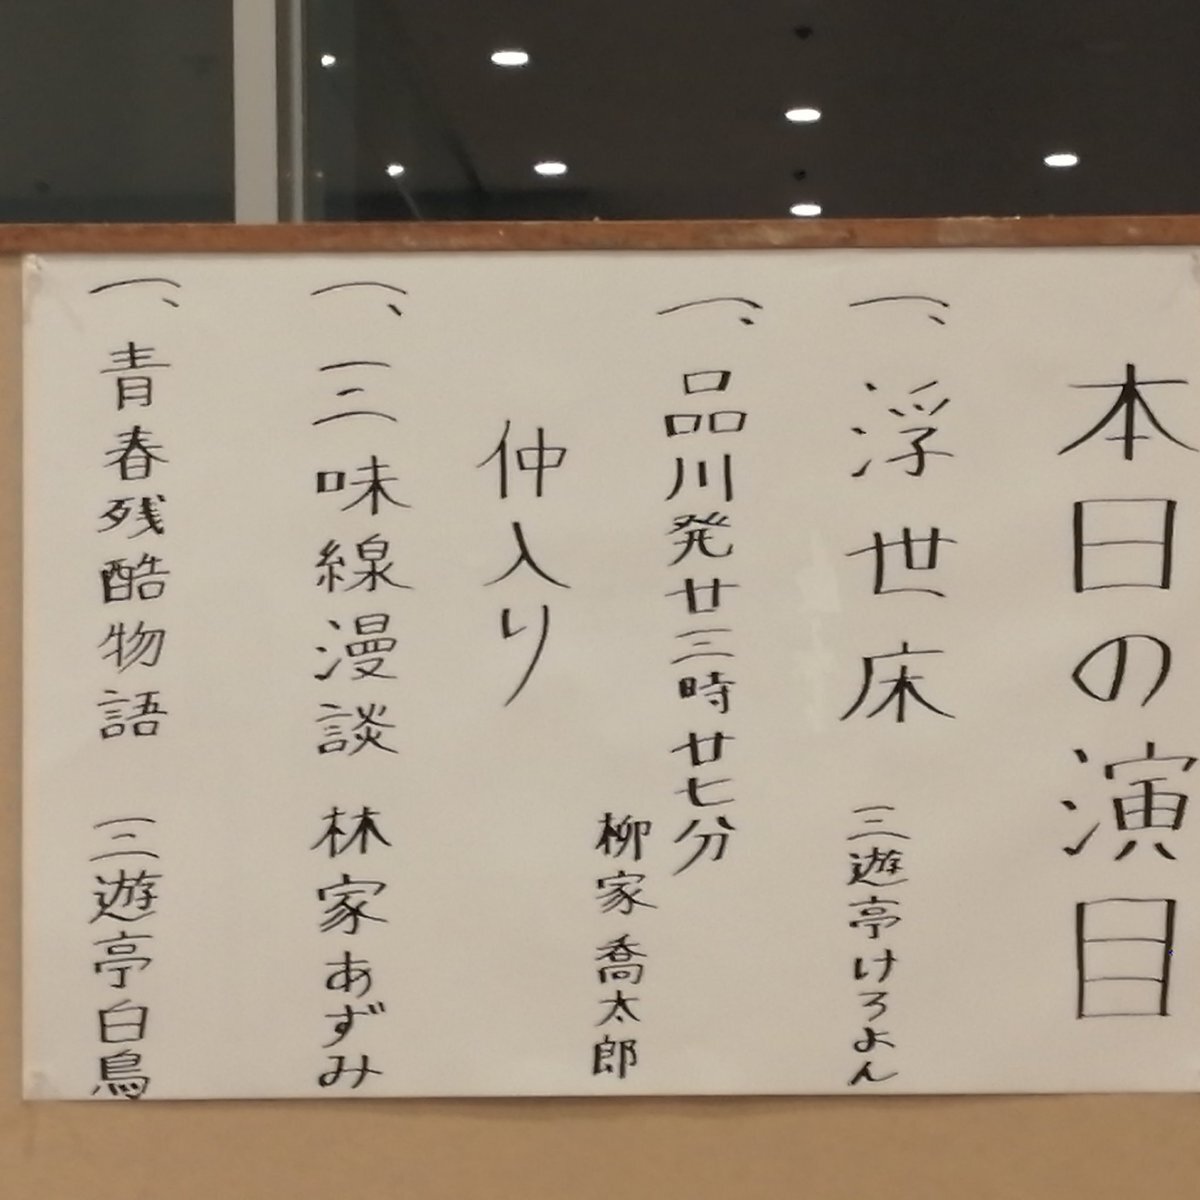 本日の演目
一、浮世床 三遊亭けろよん
一、品川発廿三時廿七分
柳家喬太郎
仲入り
一、三味線漫談 林家あずみ
一、青春残酷物語 三遊亭白鳥